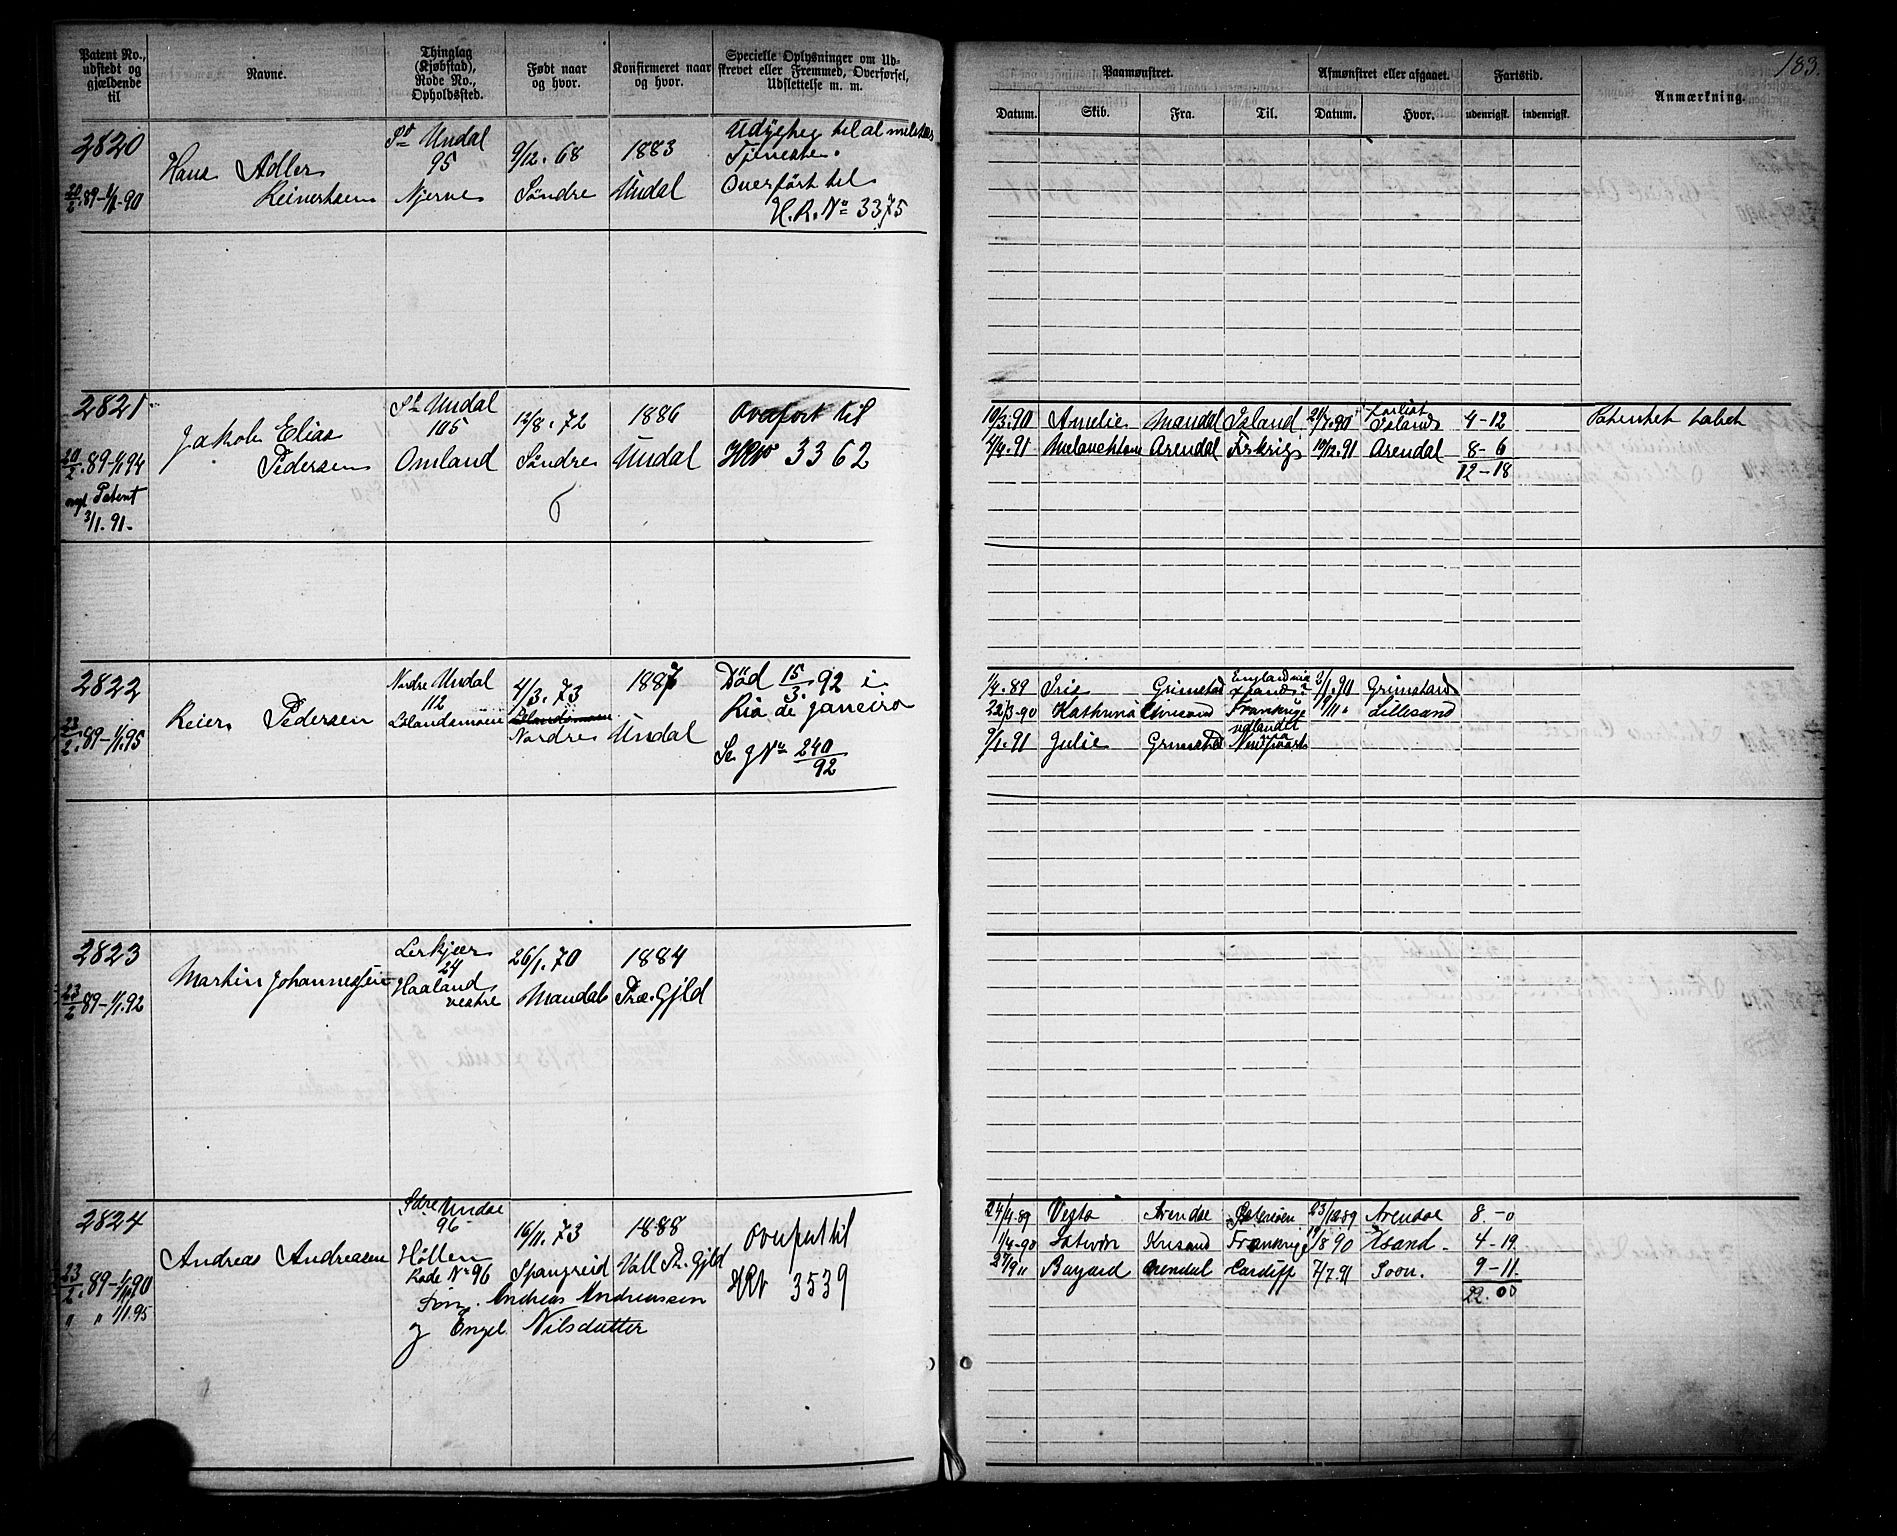 183.
Patent No., udstedt og gjældende til
Navne.
Thinglag (Kjøbstad), Rode No., Opholdssted.
Født naar og hvor.
Konfirmeret naar og hvor.
Specielle Oplysninger om Udskrevet eller Fremmed, Overførsel, Udslettelse m. m.
Paamønstret.
Afmønstret eller afgaaet.
Fartstid.
Anmærkning.
Datum. Skib. Fra. Til. Datum. Hvor. udenrigsk. indenrigsk.
2820
20/2 89-1/1 90
Hans Adler
Reinertsen
Undal
95
Njerve
9/12. 68
Søndre
1883
Undal
Udygtig til al militær
Tjeneste.
Overført til
H.R. No 3375
2821
20/2 89-1/1 94
Patent
3/1. 91.
Jakob Elias
Pedersen
Undal
105
Omland
12/8. 72
Søndre
1886
Undal
Overført til
HRNo 3362
10/3.90 Amelie Mandal Island 90 Island 4-12 Patentet tabet
4/4.91 Melanchton Arendal Frkrig 12.91 Arendal 8-6
12-18
2822
23/2 89-1/1 95
Reier Pedersen
Nordre Undal
112
4/3. 73
Nordre
1887
Undal
Død 15/3. 92 i
Rio de Janeiro
Se gNo 240/92
1/4.89 Iris Grimstad 2/1.90 Grimstad
22/3.90 Kathrina Frankrige Lillesand
9/1.91 Julie Grimstad udlandet
2823
23/2 89-1/1.92
Martin Johannessen
24
Haaland
vestre
26/1. 70
Mandal
1884
Præ.Gjld
2824
23/2. 89-1/1 90
" " 1/1.95
Andreas Andreasen
Sdre Undal
96
Høllen
Rode No 96
16/11. 73
Spangreid
1888
Vall Pr. Gjld
Andreas Andreassen
og Engel Nilsdatter
Overført til
HRN 3539
24/4.89 Vesta Arendal 89 Arendal 8.-0
90 Krisand Frankrige 90 Xsand 4-19
Bayard Arendal Cardiff 7/7.91 Soon. 9-11
22.00